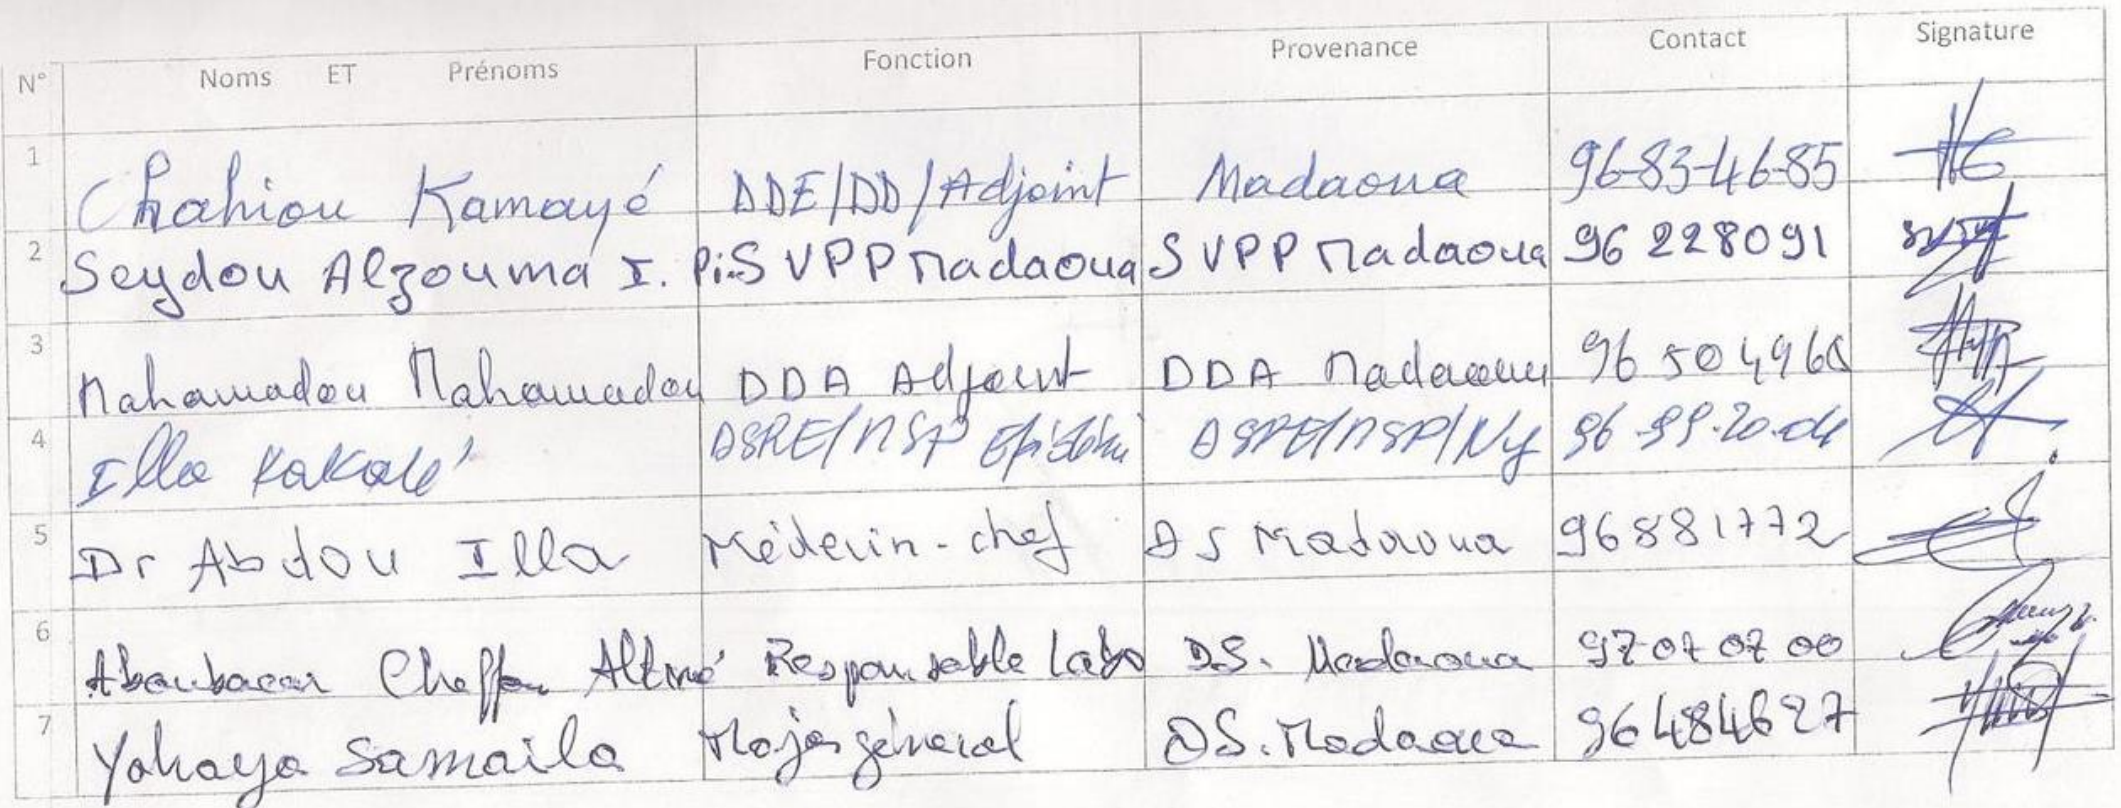 N° Noms ET Prénoms Fonction Provenance Contact Signature
1 Chahiou Kamayé DDE/DD/Adjoint Madaoua 96-83-46-85
2 Seydou Alzouma I. P.i.S VPP Madaoua S VPP Madaoua 96 228091
3 Mahamadou Mahamadou DDA Adjoint DDA Madaoua 96 504966
4 Illa Kakalé DSRE/MSP DSRE/MSP/Ny 96.99.20.04
5 Dr Abdou Illa Médecin-chef DS Madaoua 96881772
6 Aboubacar Cheffou Responsable Labo D.S. Madaoua 97 07 07 00
7 Yahaya Samaila Major général DS. Madaoua 96484627